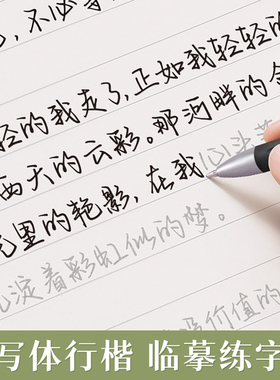 ，不必
轻的我走了，正如我轻轻的
西天的云彩。那河畔的金
里的艳影，在我心头荡
淀着彩虹似的梦。
价值的
写体行楷 临摹练字